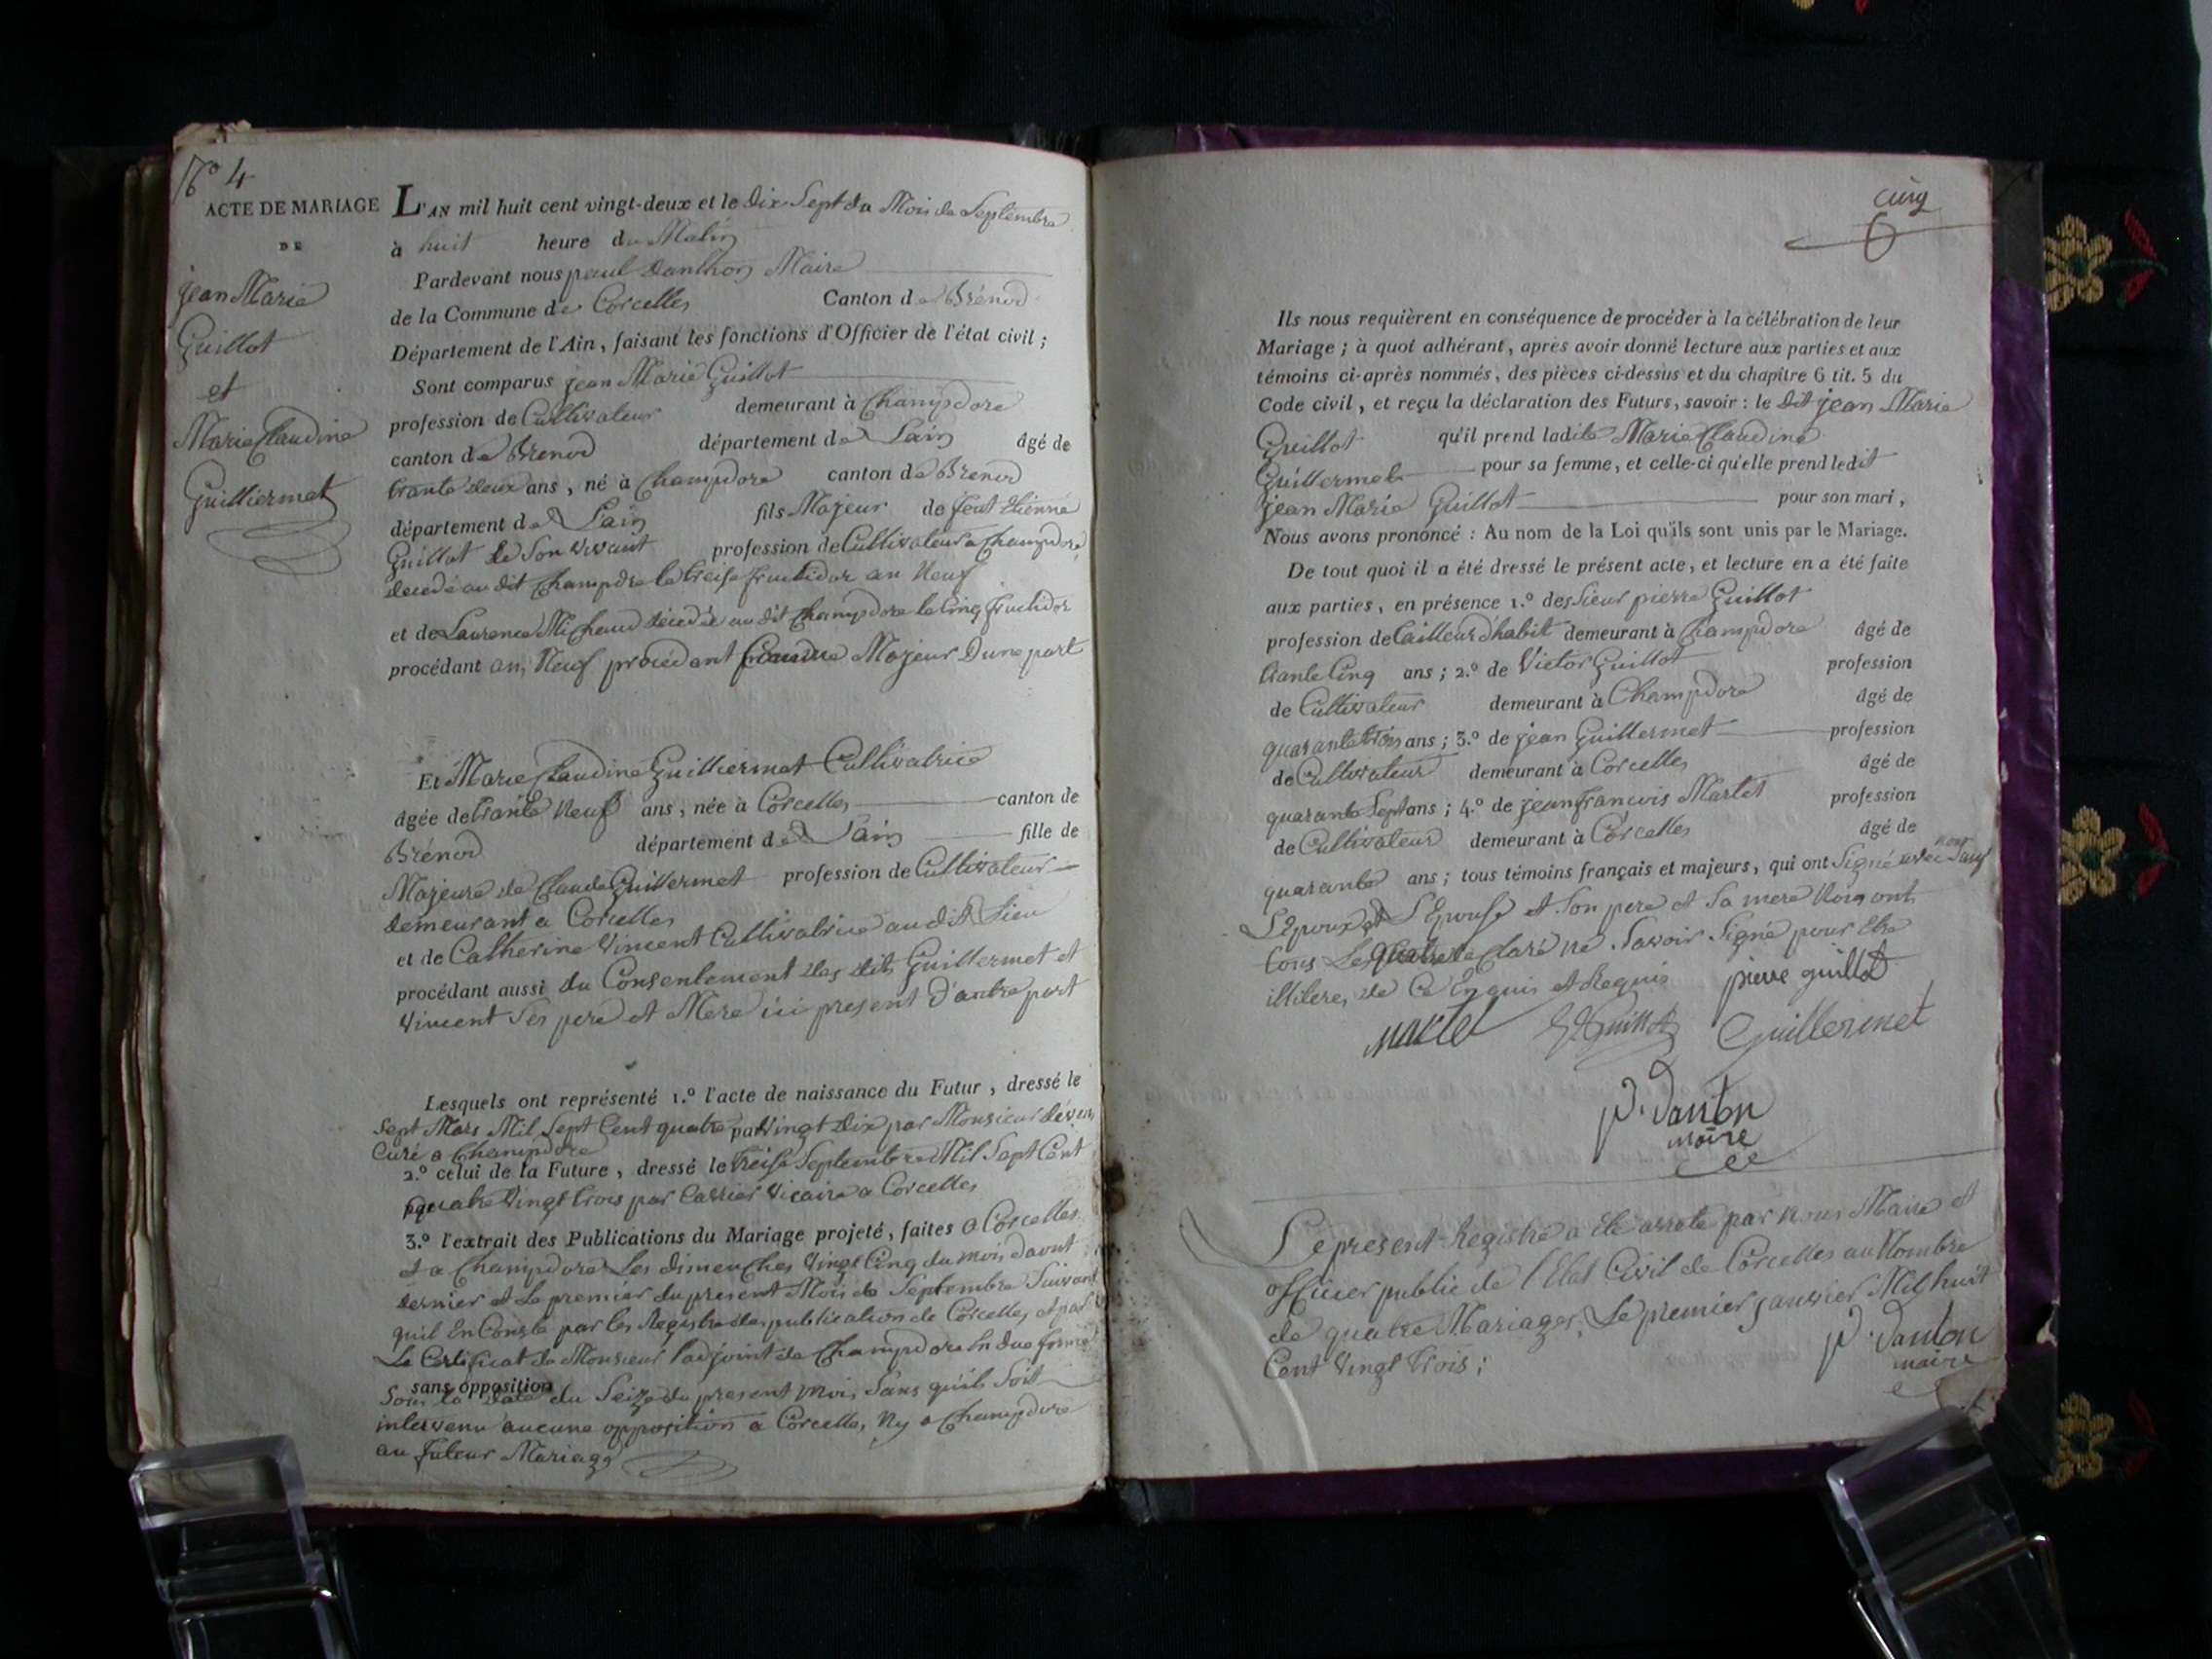 N° 4
ACTE DE MARIAGE
DE
jean Marie
Guillot
et
Marie Claudine
Guilliermet
L'AN mil huit cent vingt-deux et le dix Sept du Mois de Septembre
à huit heure du Matin
Pardevant nous paul danthon Maire
de la Commune de Corcelles Canton de Brénod
Département de l'Ain, faisant les fonctions d'Officier de l'état civil;
Sont comparus jean Marie Guillot
profession de Cultivateur demeurant à Champdore
canton de Brenod département de Lain âgé de
trante deux ans, né à Champdore canton de Brenod
département de Lain fils Majeur de feut Etienne
Guillot de Son vivant profession de Cultivateur a Champdore
decedé au dit Champdre le treise fructidor an Neuf
et de Laurence Michaud décédée au dit Champdore le Cinq fructidor
procédant an Neuf procédant Majeur Dune part
Et Marie Claudine Guilliermet Cultivatrice
âgée de trante Neuf ans, née à Corcelles canton de
Brénod département de Lain fille de
Majeure de Claude Guillermet profession de Cultivateur
demeurant a Corcelles
et de Catherine Vincent Cultivatrice au dit Lieu
procédant aussi du Consentement des dits Guillermet et
Vincent Ses pere et Mere ici present d'autre part
Lesquels ont représenté 1.° l'acte de naissance du Futur, dressé le
Sept Mars Mil Sept Cent quatre Vingt Dix par Monsieur
Curé a Champdore
2.° celui de la Future, dressé le treise Septembre Mil Sept Cent
quatre Vingt trois par Carrier Vicaire a Corcelles
3.° l'extrait des Publications du Mariage projeté, faites a Corcelles
et a Champdore Les dimenches Vingt Cinq du mois daout
dernier et Le premier du present Mois de Septembre Suivant
quil En Conste par les Registre des publication de Corcelles et par
Le Certificat de Monsieur l'adjoint de Champdore En due forme
sans opposition
Sous la date du Seize du present mois Sans quil Soit
intervenu aucune opposition a Corcelle, Ny a Champdore
au futeur Mariage
cinq
Ils nous requièrent en conséquence de procéder à la célébration de leur
Mariage; à quoi adhérant, après avoir donné lecture aux parties et aux
témoins ci-après nommés, des pièces ci-dessus et du chapitre 6 tit. 5 du
Code civil, et reçu la déclaration des Futurs, savoir: le dit jean Marie
Guillot qu'il prend ladite Marie Claudine
Guillermet pour sa femme, et celle-ci qu'elle prend ledit
jean Marie Guillot pour son mari,
Nous avons prononcé: Au nom de la Loi qu'ils sont unis par le Mariage.
De tout quoi il a été dressé le présent acte, et lecture en a été faite
aux parties, en présence 1.° des Sieur pierre Guillot
profession de tailleur d'habit demeurant à Champdore âgé de
trante Cinq ans; 2.° de Victor Guillot profession
de Cultivateur demeurant à Champdore âgé de
quarante trois ans; 3.° de jean Guillermet profession
de Cultivateur demeurant à Corcelles âgé de
quarante Sept ans; 4.° de jean francois Martet profession
de Cultivateur demeurant à Corcelles âgé de
quarante ans; tous témoins français et majeurs, qui ont Signé avec nous Sauf
L'Epoux et L'Epouse et Son pere et Sa mere Nous ont
tous Les quatre declaré ne Savoir Signé pour Etre
illitere, de Ce Enquis et Requis pierre guillot
Martet Guillot Guillermet
P. Danton
maire
Le present Registre a été arrete par nous Maire et
officier public de l'Etat Civil de Corcelles au Nombre
de quatre Mariages, Le premier janvier Mil huit
Cent Vingt trois; P. Danton
maire